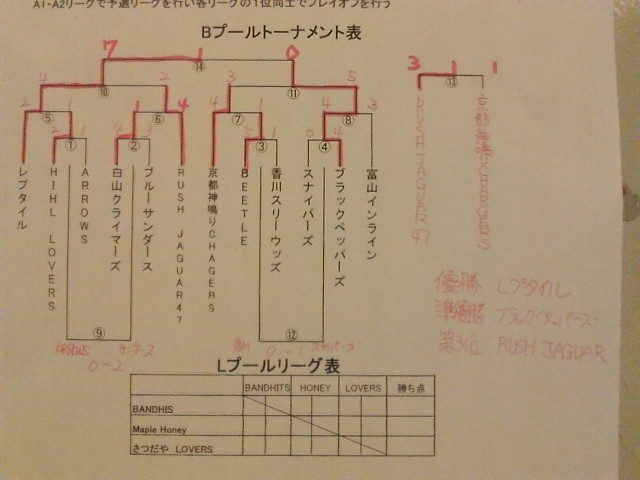 A1・A2リーグで予選リーグを行い各リーグの1位同士でプレイオフを行う
Bプールトーナメント表
7 1 0
⑭
3 1 1
⑬
4 2 3 5
⑩ ⑪
2 1 1 4 4 1 4 3
⑤ ⑥ ⑦ ⑧
2 1 4 3 5 1 0 4
① ② ③ ④
レプタイル
HIHL LOVERS
ARROWS
白山クライマーズ
ブルーサンダース
RUSH JAGUAR47
京都神鳴りCHAGERS
BEETLE
香川スリーウッズ
スナイパーズ
ブラックペッパーズ
富山インライン
RUSH JAGUAR 47
京都神鳴りCHARGERS
⑨ ⑫
ARROWS サンダース
0-2
香川 0-1 スナイパーズ
優勝 レプタイル
準優勝 ブラックペッパーズ
第3位 RUSH JAGUAR
Lプールリーグ表
BANDHITS HONEY LOVERS 勝ち点
BANDHIS
Maple Honey
さつだや LOVERS